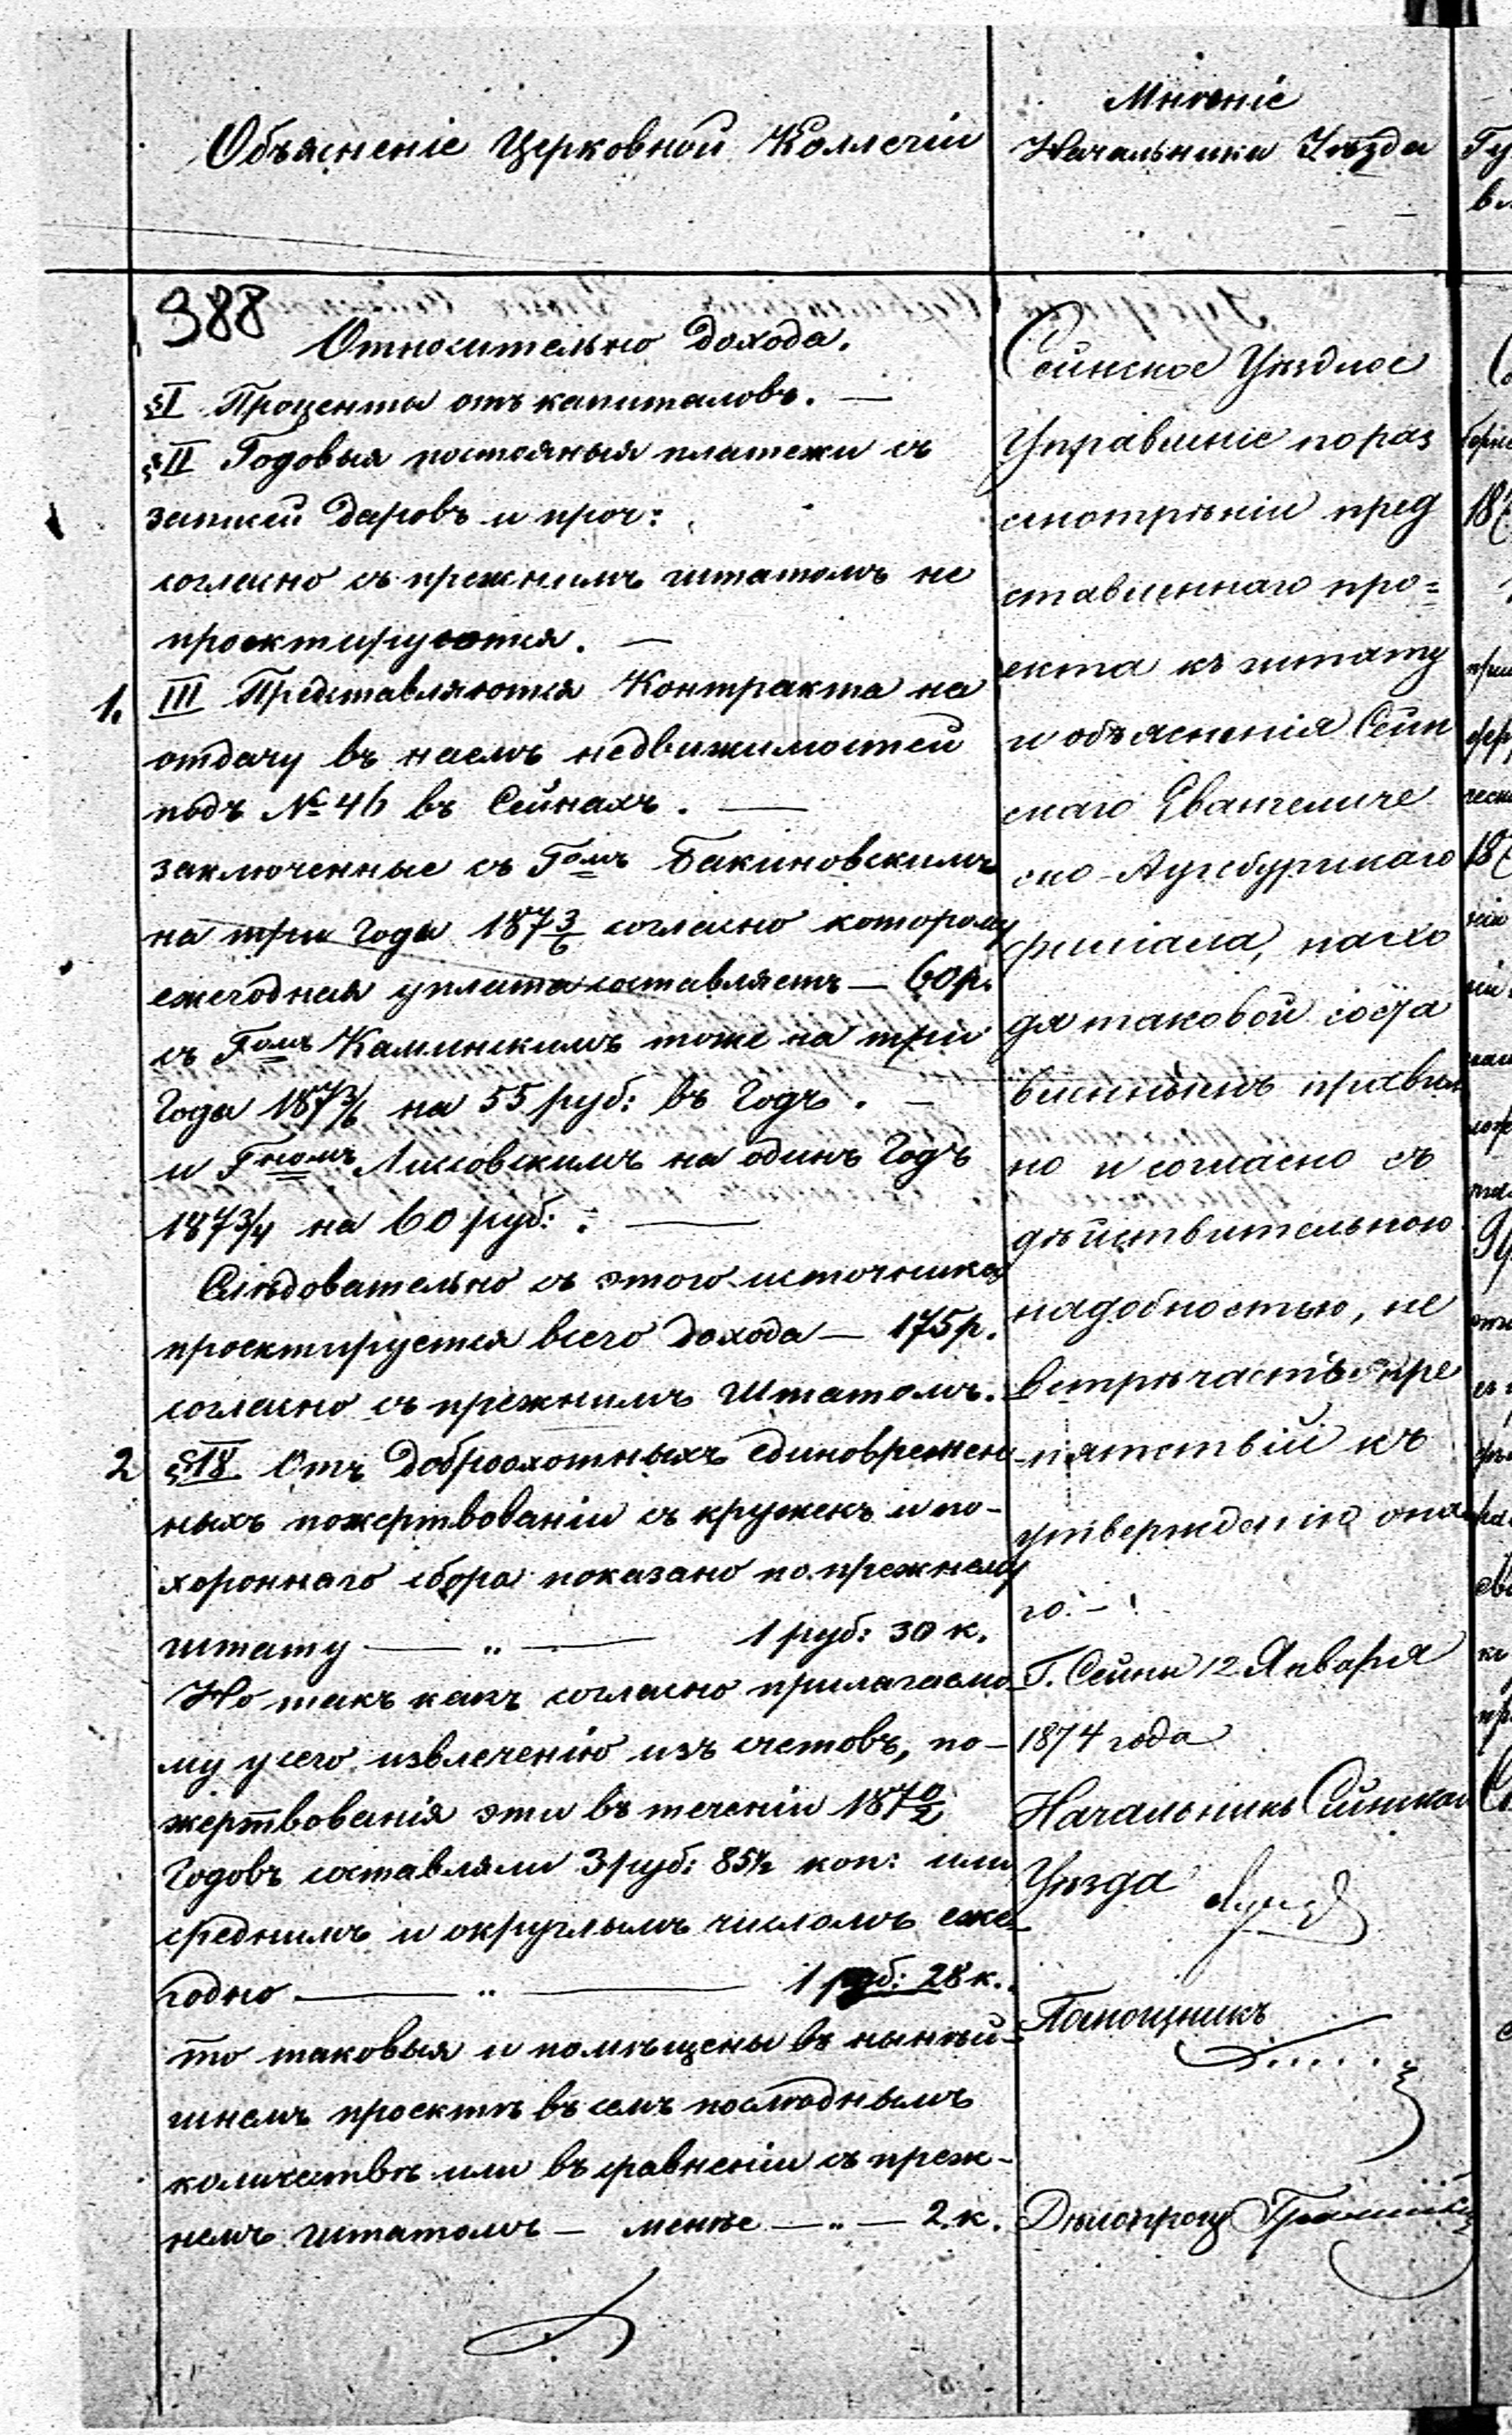 Объясненіе Церковной Коллегіи
388
Относительно дохода.
§I Проценты отъ капиталовъ. —
§II Годовыя постояныя платежи съ
записей даровъ и проч:
согласно съ прежнимъ штатомъ не
проектируются. —
1. III Представляются Контракта на
отдачу въ наемъ недвижимостей
подъ № 46 въ Сейнахъ. —
заключенные съ Гомъ Бакиновскимъ
на три года 1873/6 согласно которому
ежегодная уплата составляетъ — 60 р.
съ Гомъ Каминскимъ тоже на три
года 1873/6 на 55 руб: въ годъ. —
и Гномъ Лисовскимъ на одинъ годъ
1873/4 на 60 руб: . —
Слѣдовательно съ этого источника
проектируется всего дохода — 175 р.
согласно съ прежнимъ Штатомъ.
2 §IV. Отъ доброохотныхъ единовремен
ныхъ пожертвованіи съ кружекъ и по-
хороннаго сбора показано по прежнему
штату — „ — 1 руб: 30 к.
Но такъ какъ согласно прилагаемо
му у сего извлеченію изъ счетовъ, по-
жертвованія эти въ теченіи 1870/2
годовъ составляли 3 руб: 85½ коп: или
среднимъ и округлымъ числомъ еже-
годно — „ — 1 руб: 28 к.
то таковыя и помѣщены въ нынѣй-
шнемъ проектѣ въ семъ послѣднымъ
количествѣ или въ сравненіи съ преж-
немъ штатомъ — менѣе — „ — 2. к.
Мнѣніе
Начальника Уѣзда
Сейнское Уѣздное
Управленіе по раз
смотрѣніи пред
ставленнаго про=
екта къ штату
и объясненія Сейн
скаго Евангеличе
ско-Аугсбургскаго
филіала, нахо
дя таковой соста
вленнымъ правиль
но и согласно съ
дѣйствительною
надобностью, не
встрѣчаетъ пре
пятствій къ
утвержденію она
го. —
Г. Сейны 12 Января
1874 года
Начальникъ Сейнскаго
Уѣзда
Помощникъ
Дѣлопроиз